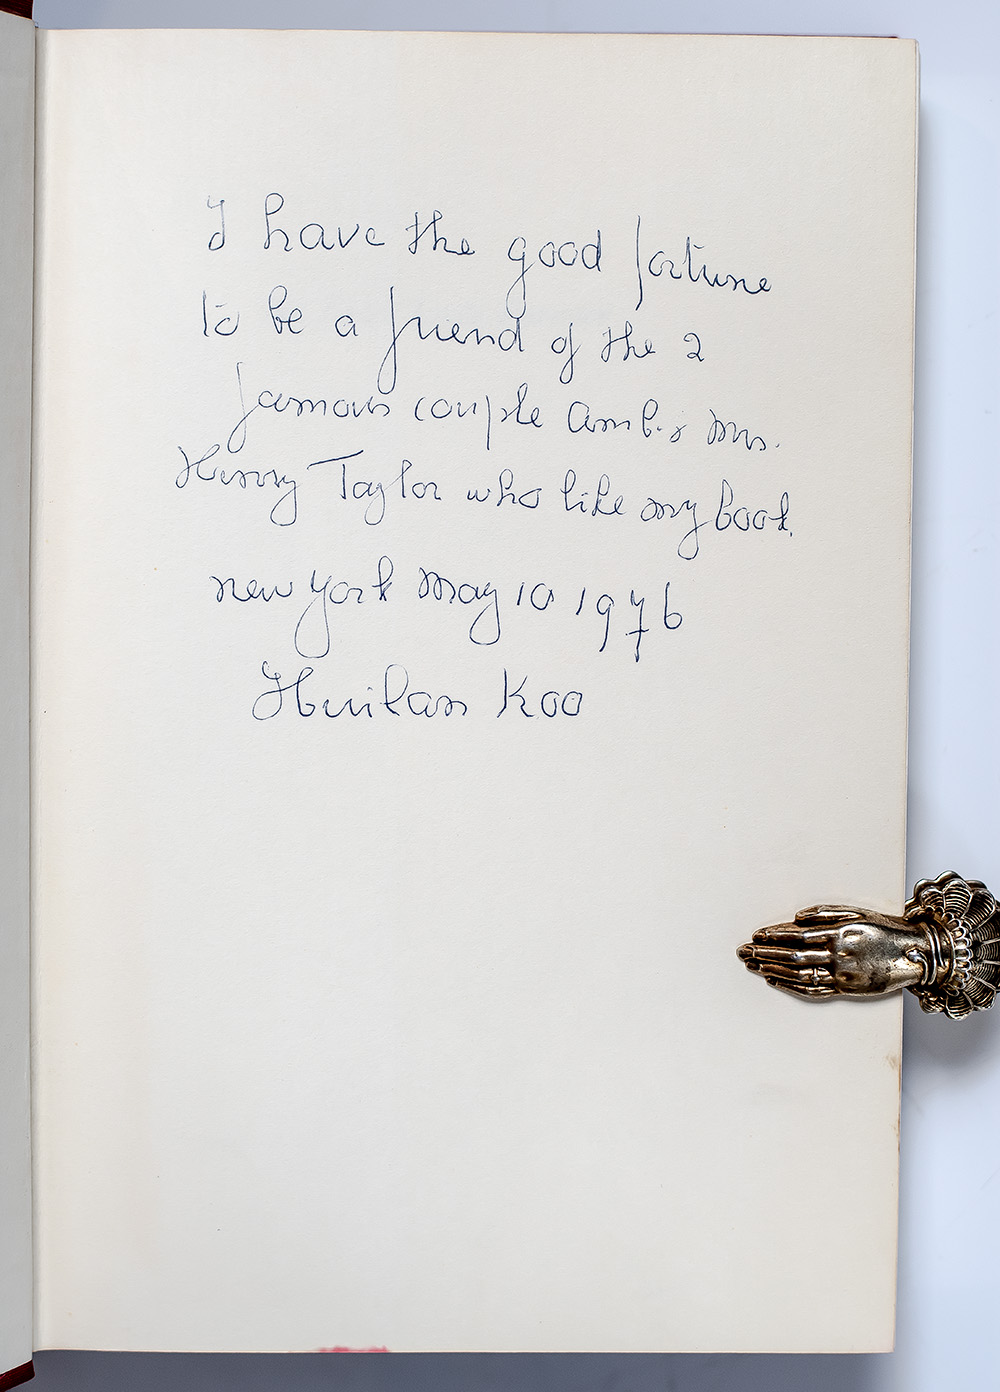 I have the good fortune
to be a friend of the 2
famous couple Amb. & Mrs.
Henry Taylor who like my book.
new york May 10 1976
Huilan Koo